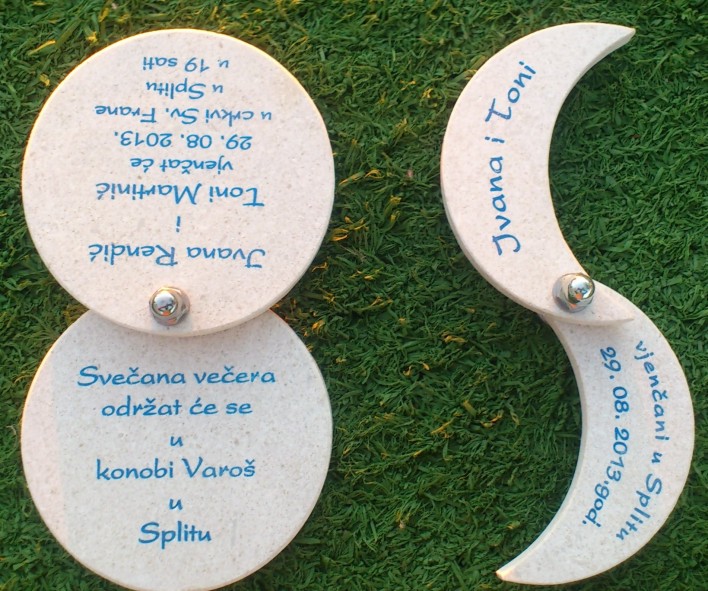 Ivana Rendić
i
Toni Martinić
vjenčat će
29. 08. 2013.
u crkvi Sv. Frane
u Splitu
u 19 sati
Svečana večera
održat će se
u
konobi Varoš
u
Splitu
Ivana i Toni
vjenčani u Splitu
29. 08. 2013.god.